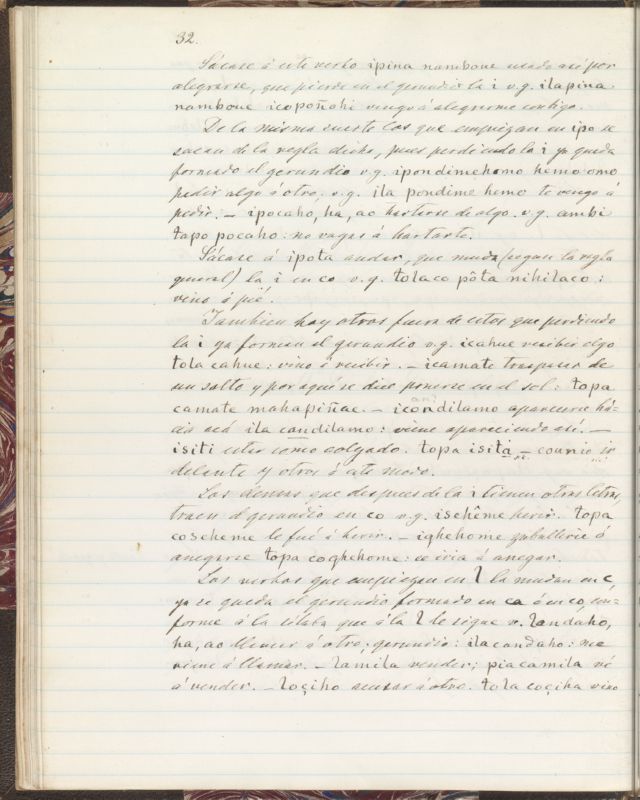 32.
Sácase á este verbo ipina namboue usado así por
alegrarse, que pierde en el gerundio la i v.g. ilapina
namboue icopoñohi vengo á alegrarme contigo.
De la misma suerte los que empiezan en ipo se
sacan de la regla dicha, pues perdiendo la i ya queda
formado el gerundio v.g. ipondimehomo hemo omo
pedir algo á otro. v.g. ila pondime hemo te vengo á
pedir. – ipocaho, ha, ao hartarse de algo. v.g. ambi
tapo pocaho: no vayas á hartarte.
Sácase á ipota andar, que muda (segun la regla
general) la i en co v.g. tolaco pôta nihilaco:
vino á pié.
Tambien hay otros fuera de estos que perdiendo
la i ya forman el gerundio v.g. icahue recibir algo
tola cahue: vino á recibir. – icamate traspasar de
un salto y por aquí se dice ponerse en el sol: topa
camate mahapiñae. – icondilamo aparecerse há-
cia acá ila candilamo: viene apareciendo así. –
isiti estar como colgado. topa isità –
delante y otros á este modo.
Los demas que despues de la i tienen otras letras,
traen el gerundio en co v.g. ischême herir. topa
coscheme le fué á herir. – ighehome zabullirse ó
anegarse topa coghehome: se iria á anegar.
Los verbos que empiezan en l la mudan en c,
ya se queda el gerundio formado en ca ó en co, con-
forme á la sílaba que á la l le sigue v. landaho,
ha, ao llamar á otro; gerundio: ilacandaho: me
viene á llamar. – lamila vender; piacamila vé
á vender. – loçiho acusar á otro. tola coçiha vino